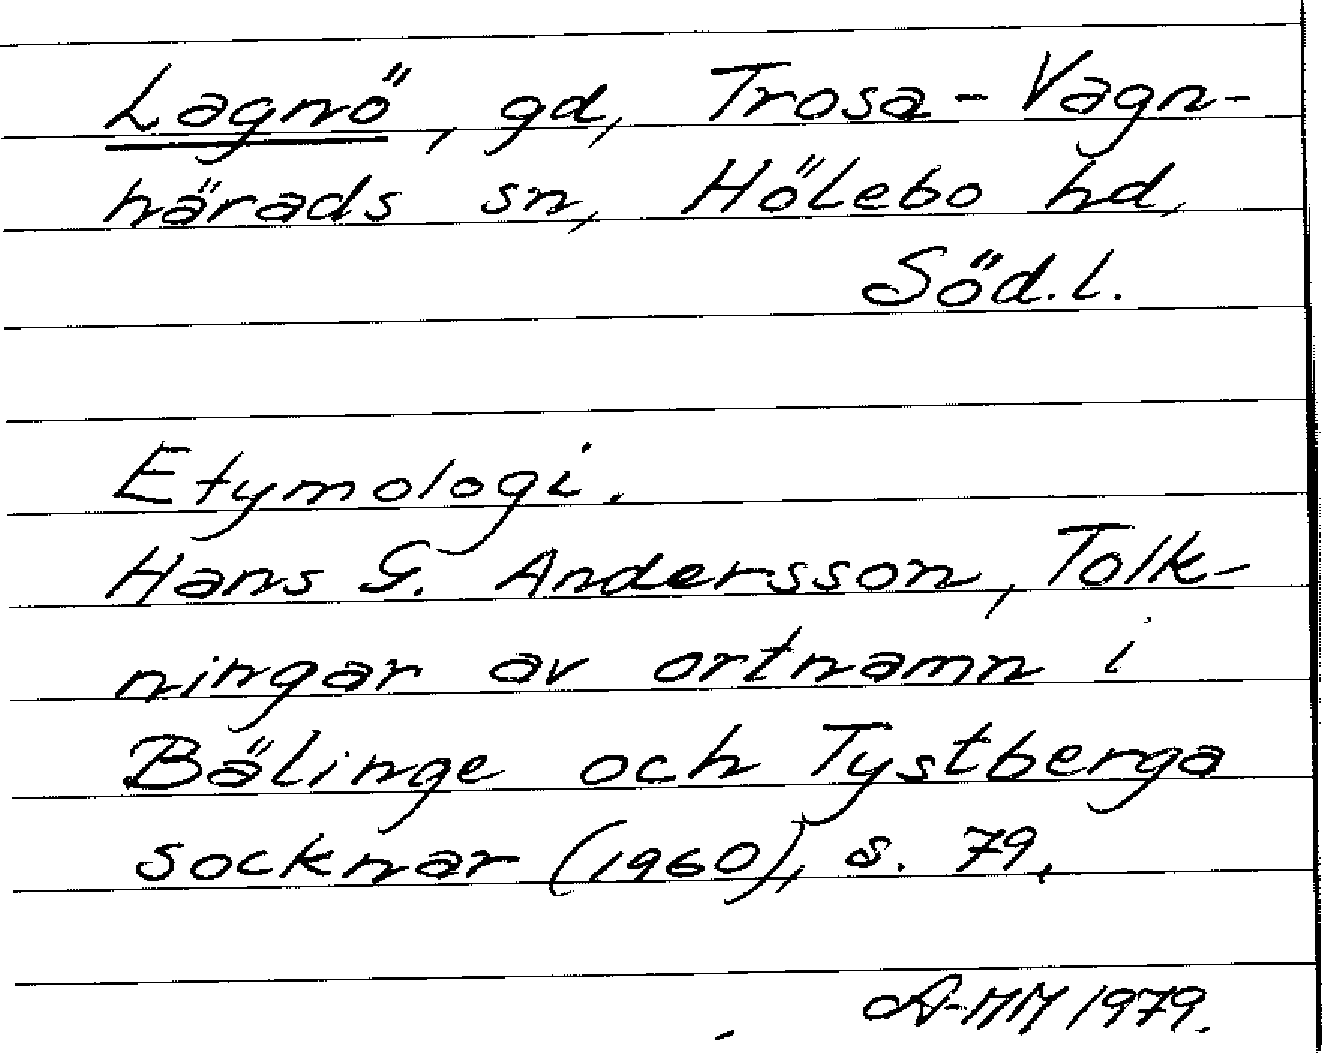 Lagnö, gd, Trosa-Vagn-
härads sn, Hölebo hd,
Söd.l.
Etymologi.
Hans G. Andersson, Tolk-
ningar av ortnamn i
Bälinge och Tystberga
socknar (1960), s. 79.
A-MM 1979.